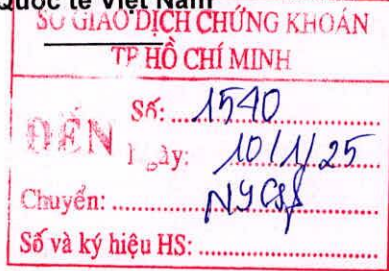 Quốc tế Việt Nam
SỞ GIAO DỊCH CHỨNG KHOÁN
TP HỒ CHÍ MINH
ĐẾN
Số: 1540
Ngày: 10/1/25
Chuyển:
Số và ký hiệu HS: